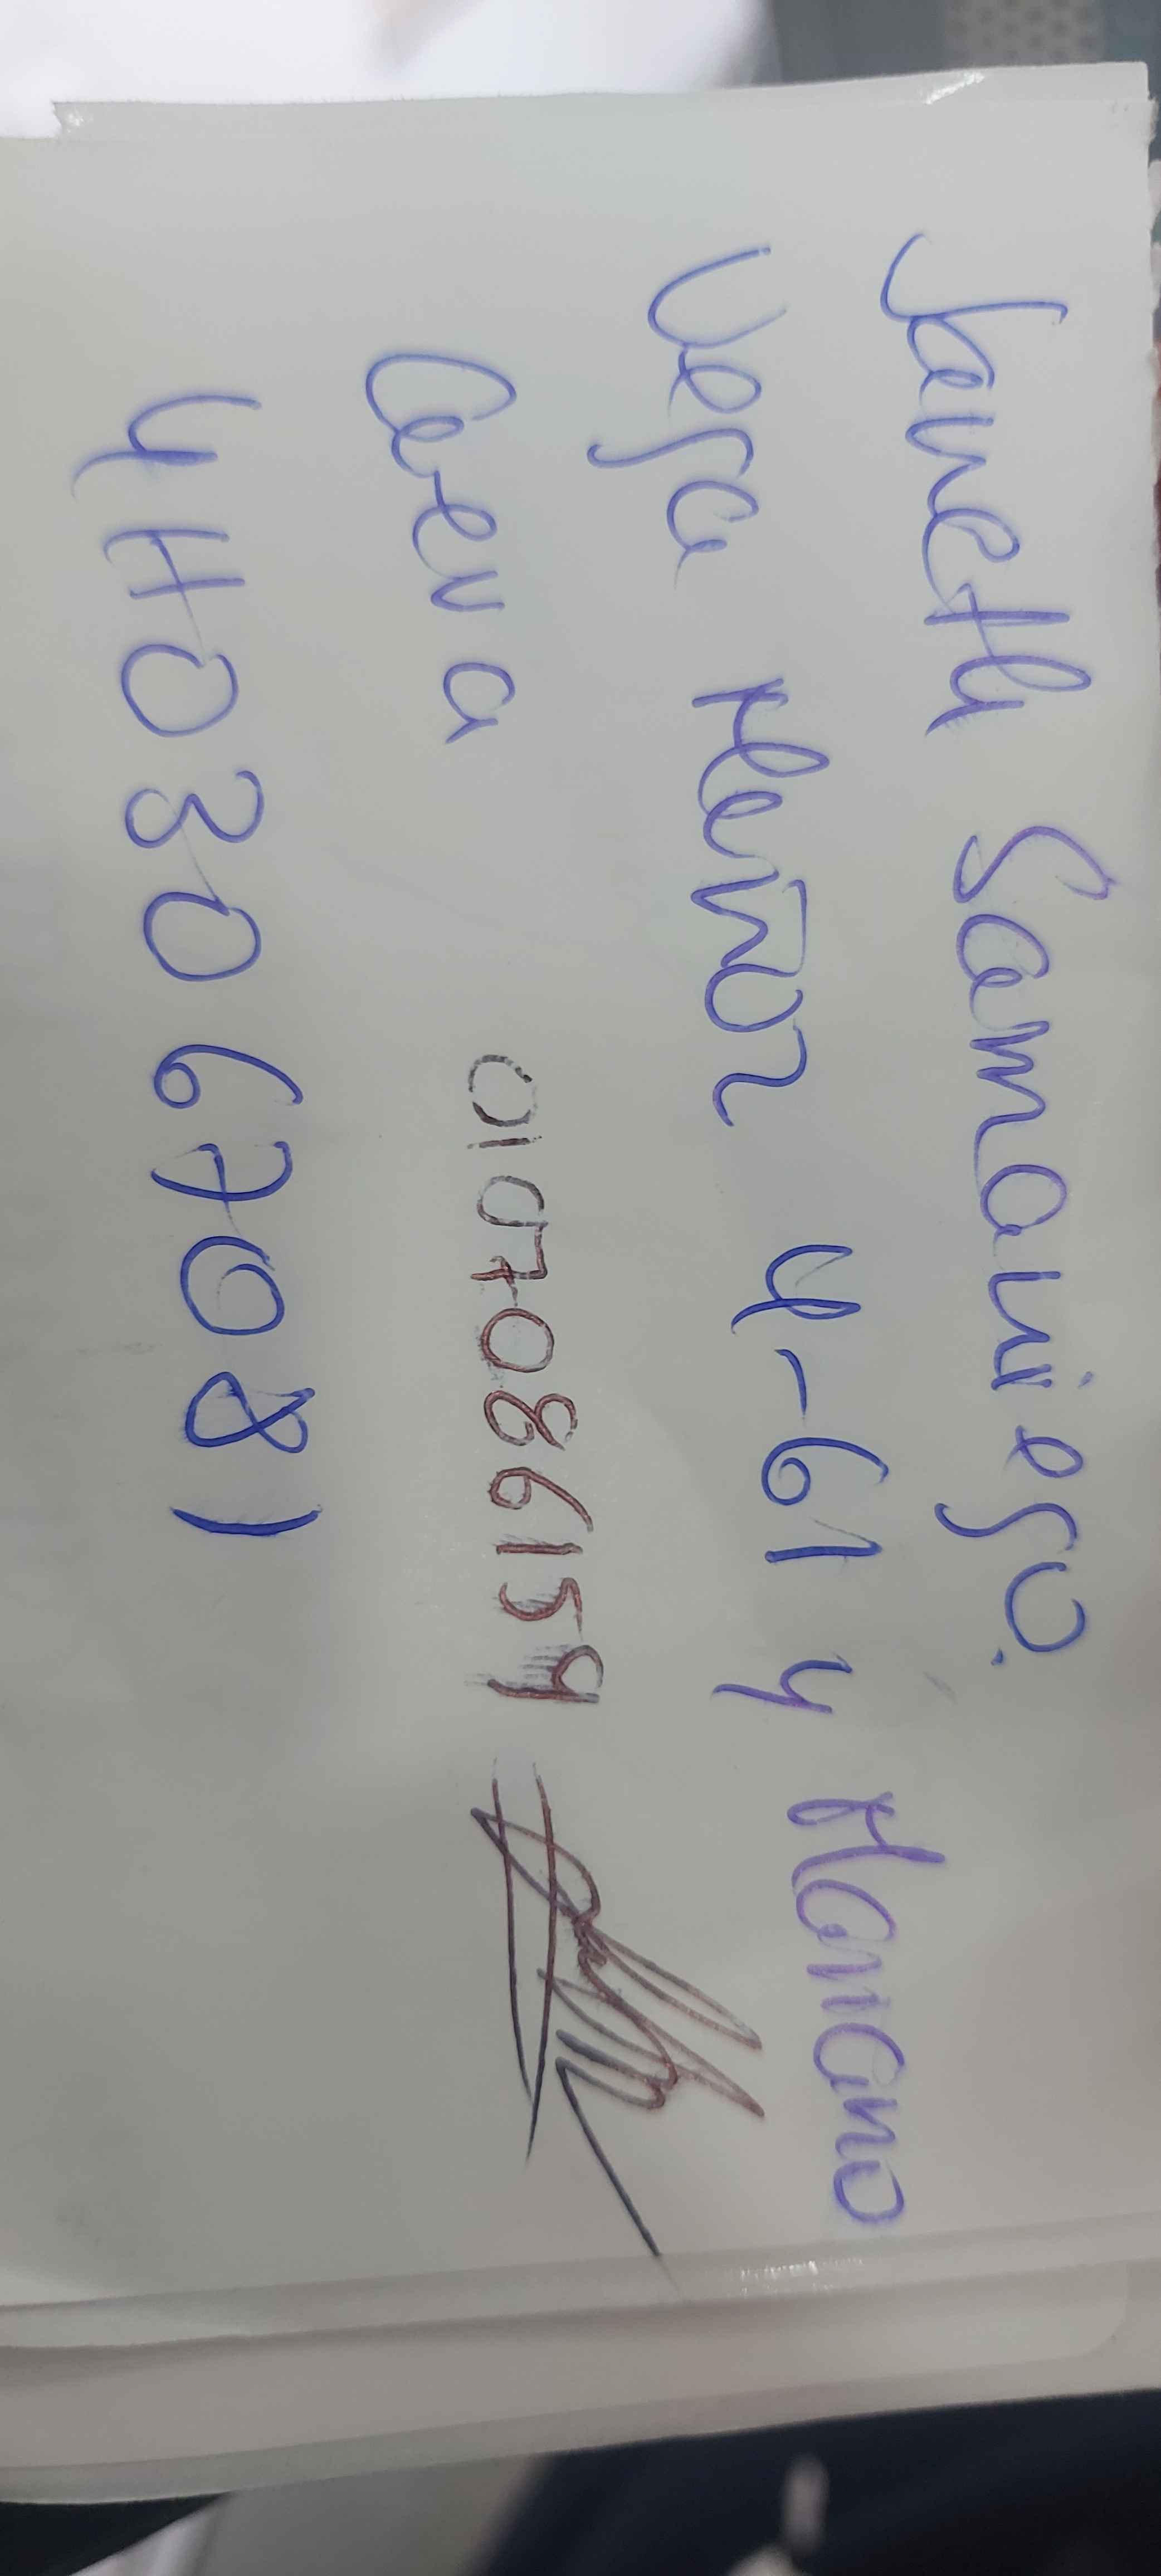 Janeth Samaniego.
Vega Muñoz 4-61 y Mariano
Cueva
0107086159
4H03067081